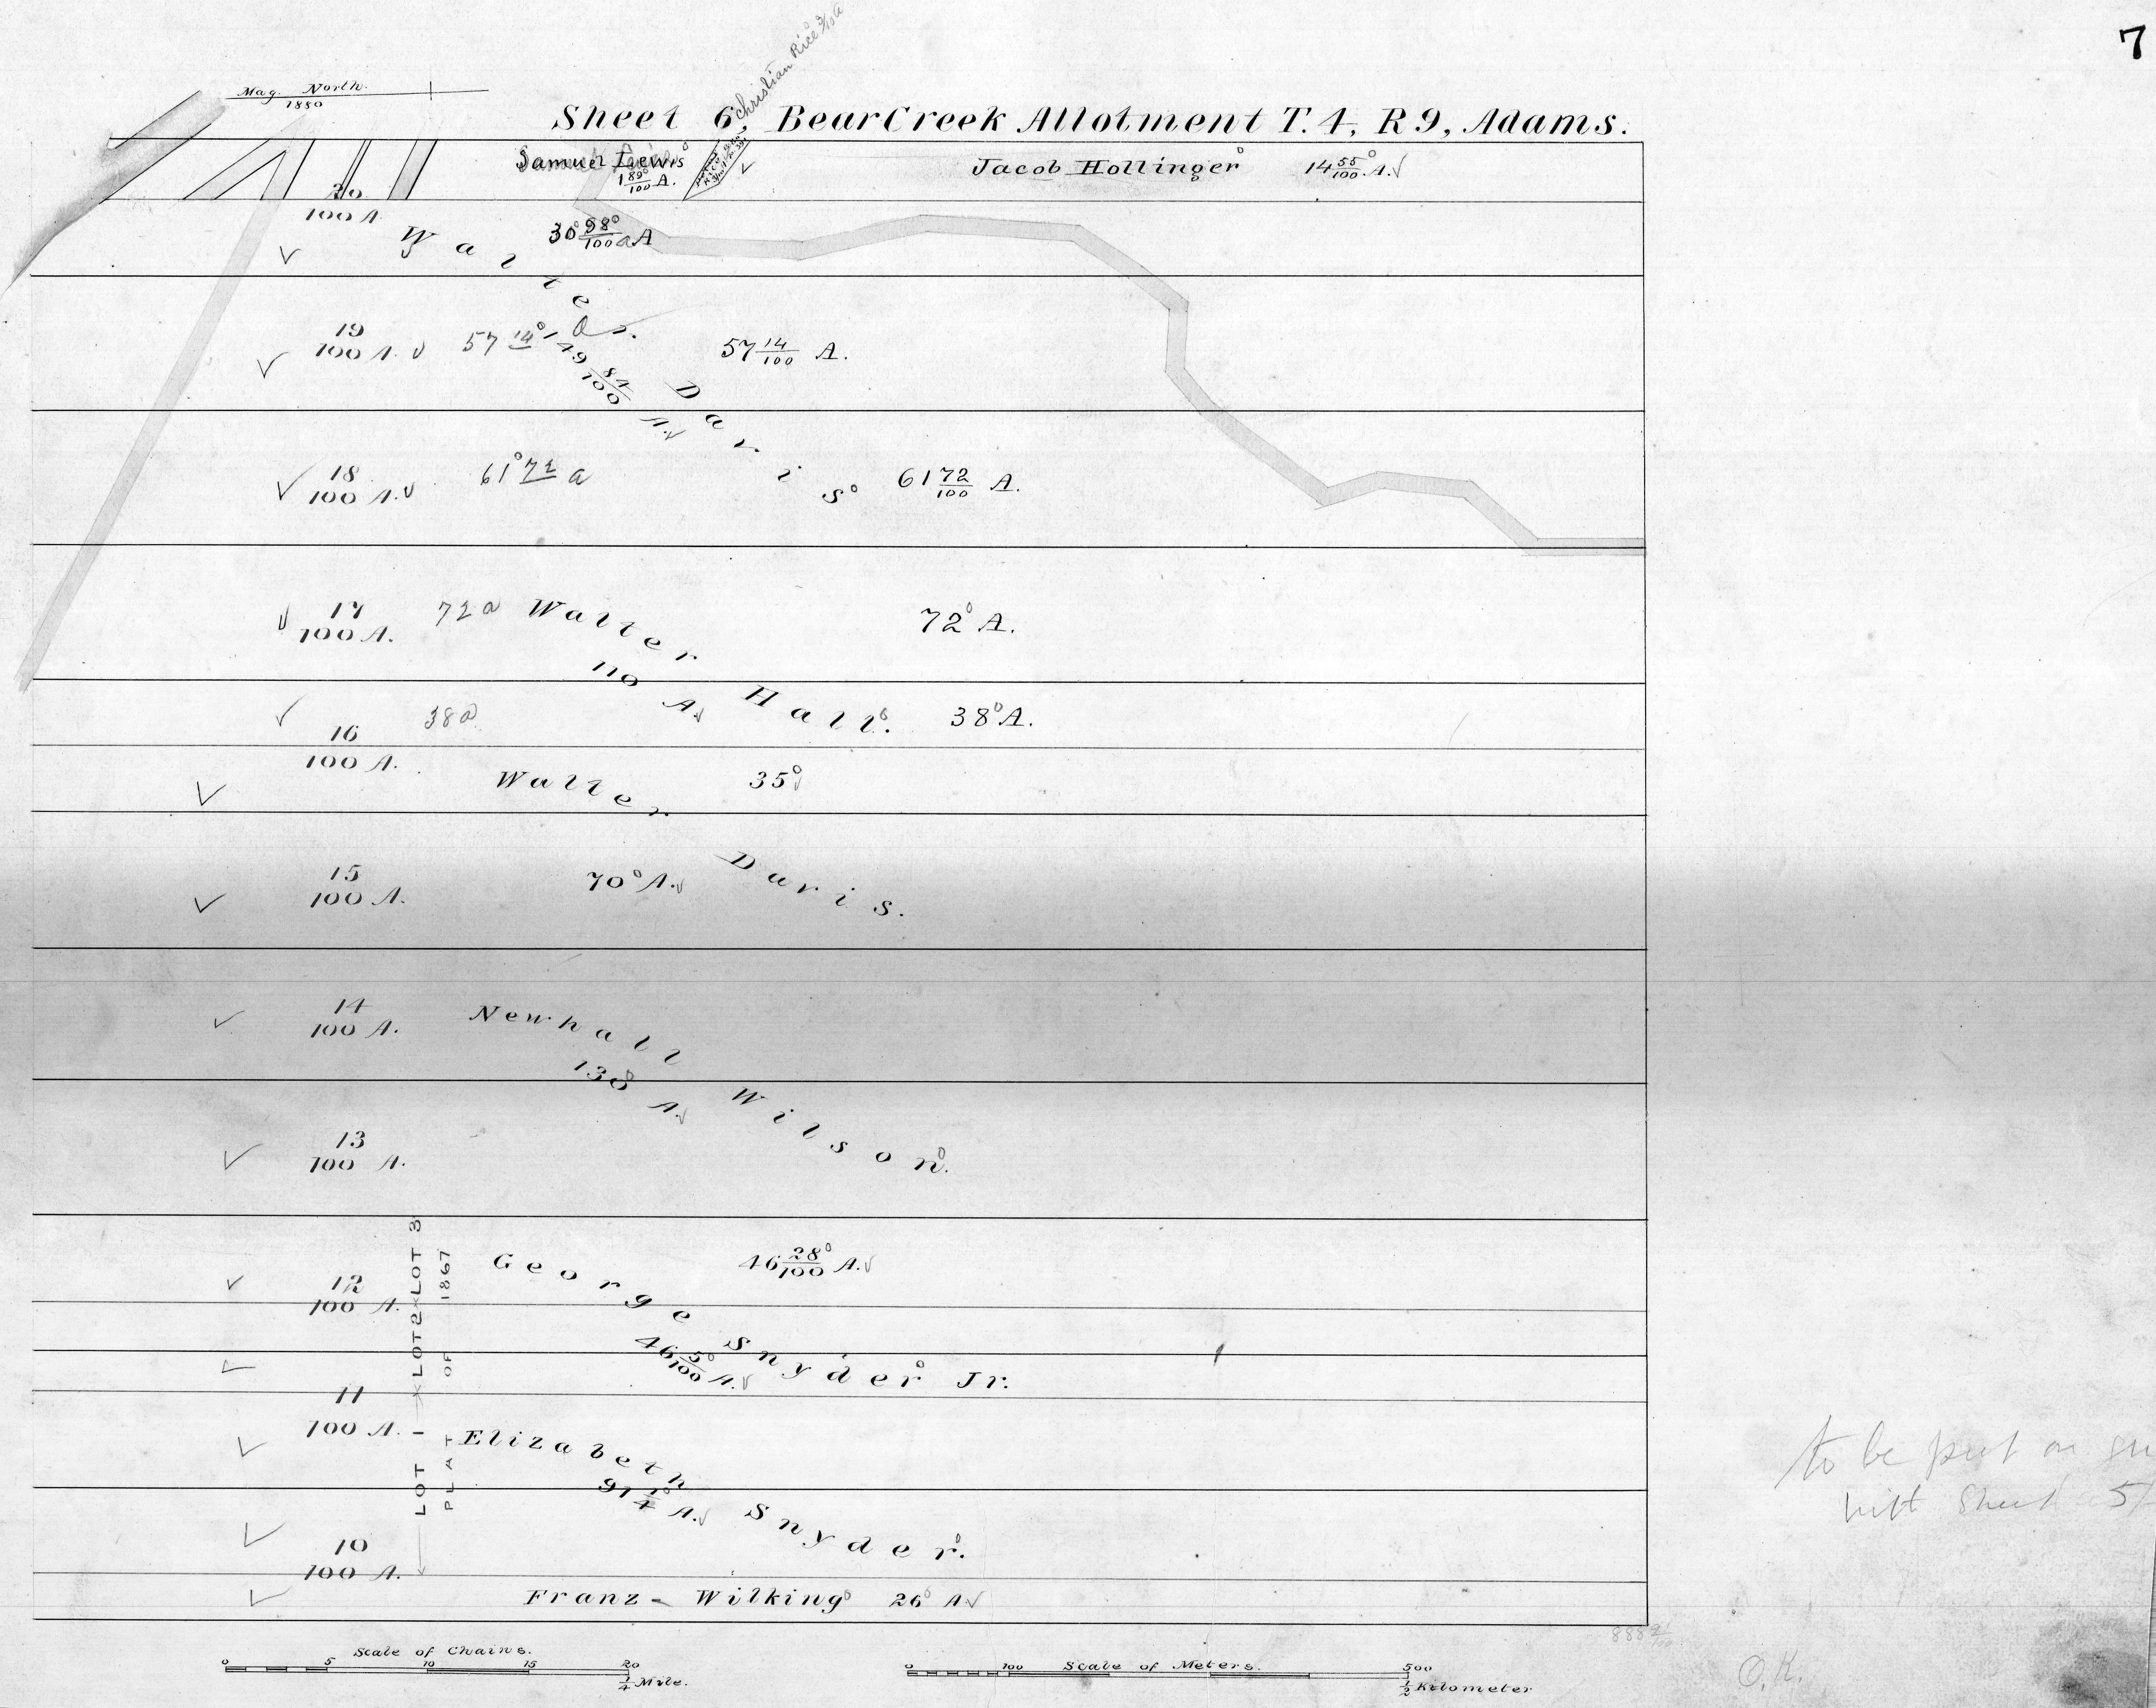 7
Mag. North.
1880
Christian Rice
Sheet 6, Bear Creek Allotment T. 4, R 9, Adams.
Samuel Lewis
1 89/100 A.
Jacob Hollinger 14 55/100 A.
20
100 A
30 98/100 a A
Walter
Davis
149 84/100 A.
19
100 A.
57 14
57 14/100 A.
18
100 A.
61 72 a
61 72/100 A.
17
100 A.
72 a
Walter
Hall.
110 A.
72 A.
38 a
38 A.
16
100 A.
Walter
Davis.
35
15
100 A.
70 A.
14
100 A.
Newhall
Wilson.
130 A.
13
100 A.
LOT 1 LOT 2 LOT 3
PLAT OF 1867
12
100 A.
George
Snyder Jr.
46 28/100 A.
46 5/100 A.
11
100 A.
Elizabeth
Snyder.
91 1/4 A.
10
100 A.
Franz Wilking 26 A
to be put on
with Sheet 5
O.K.
Scale of Chains.
0 5 10 15 20
1/4 Mile.
Scale of Meters.
0 100 500
1/2 Kilometer